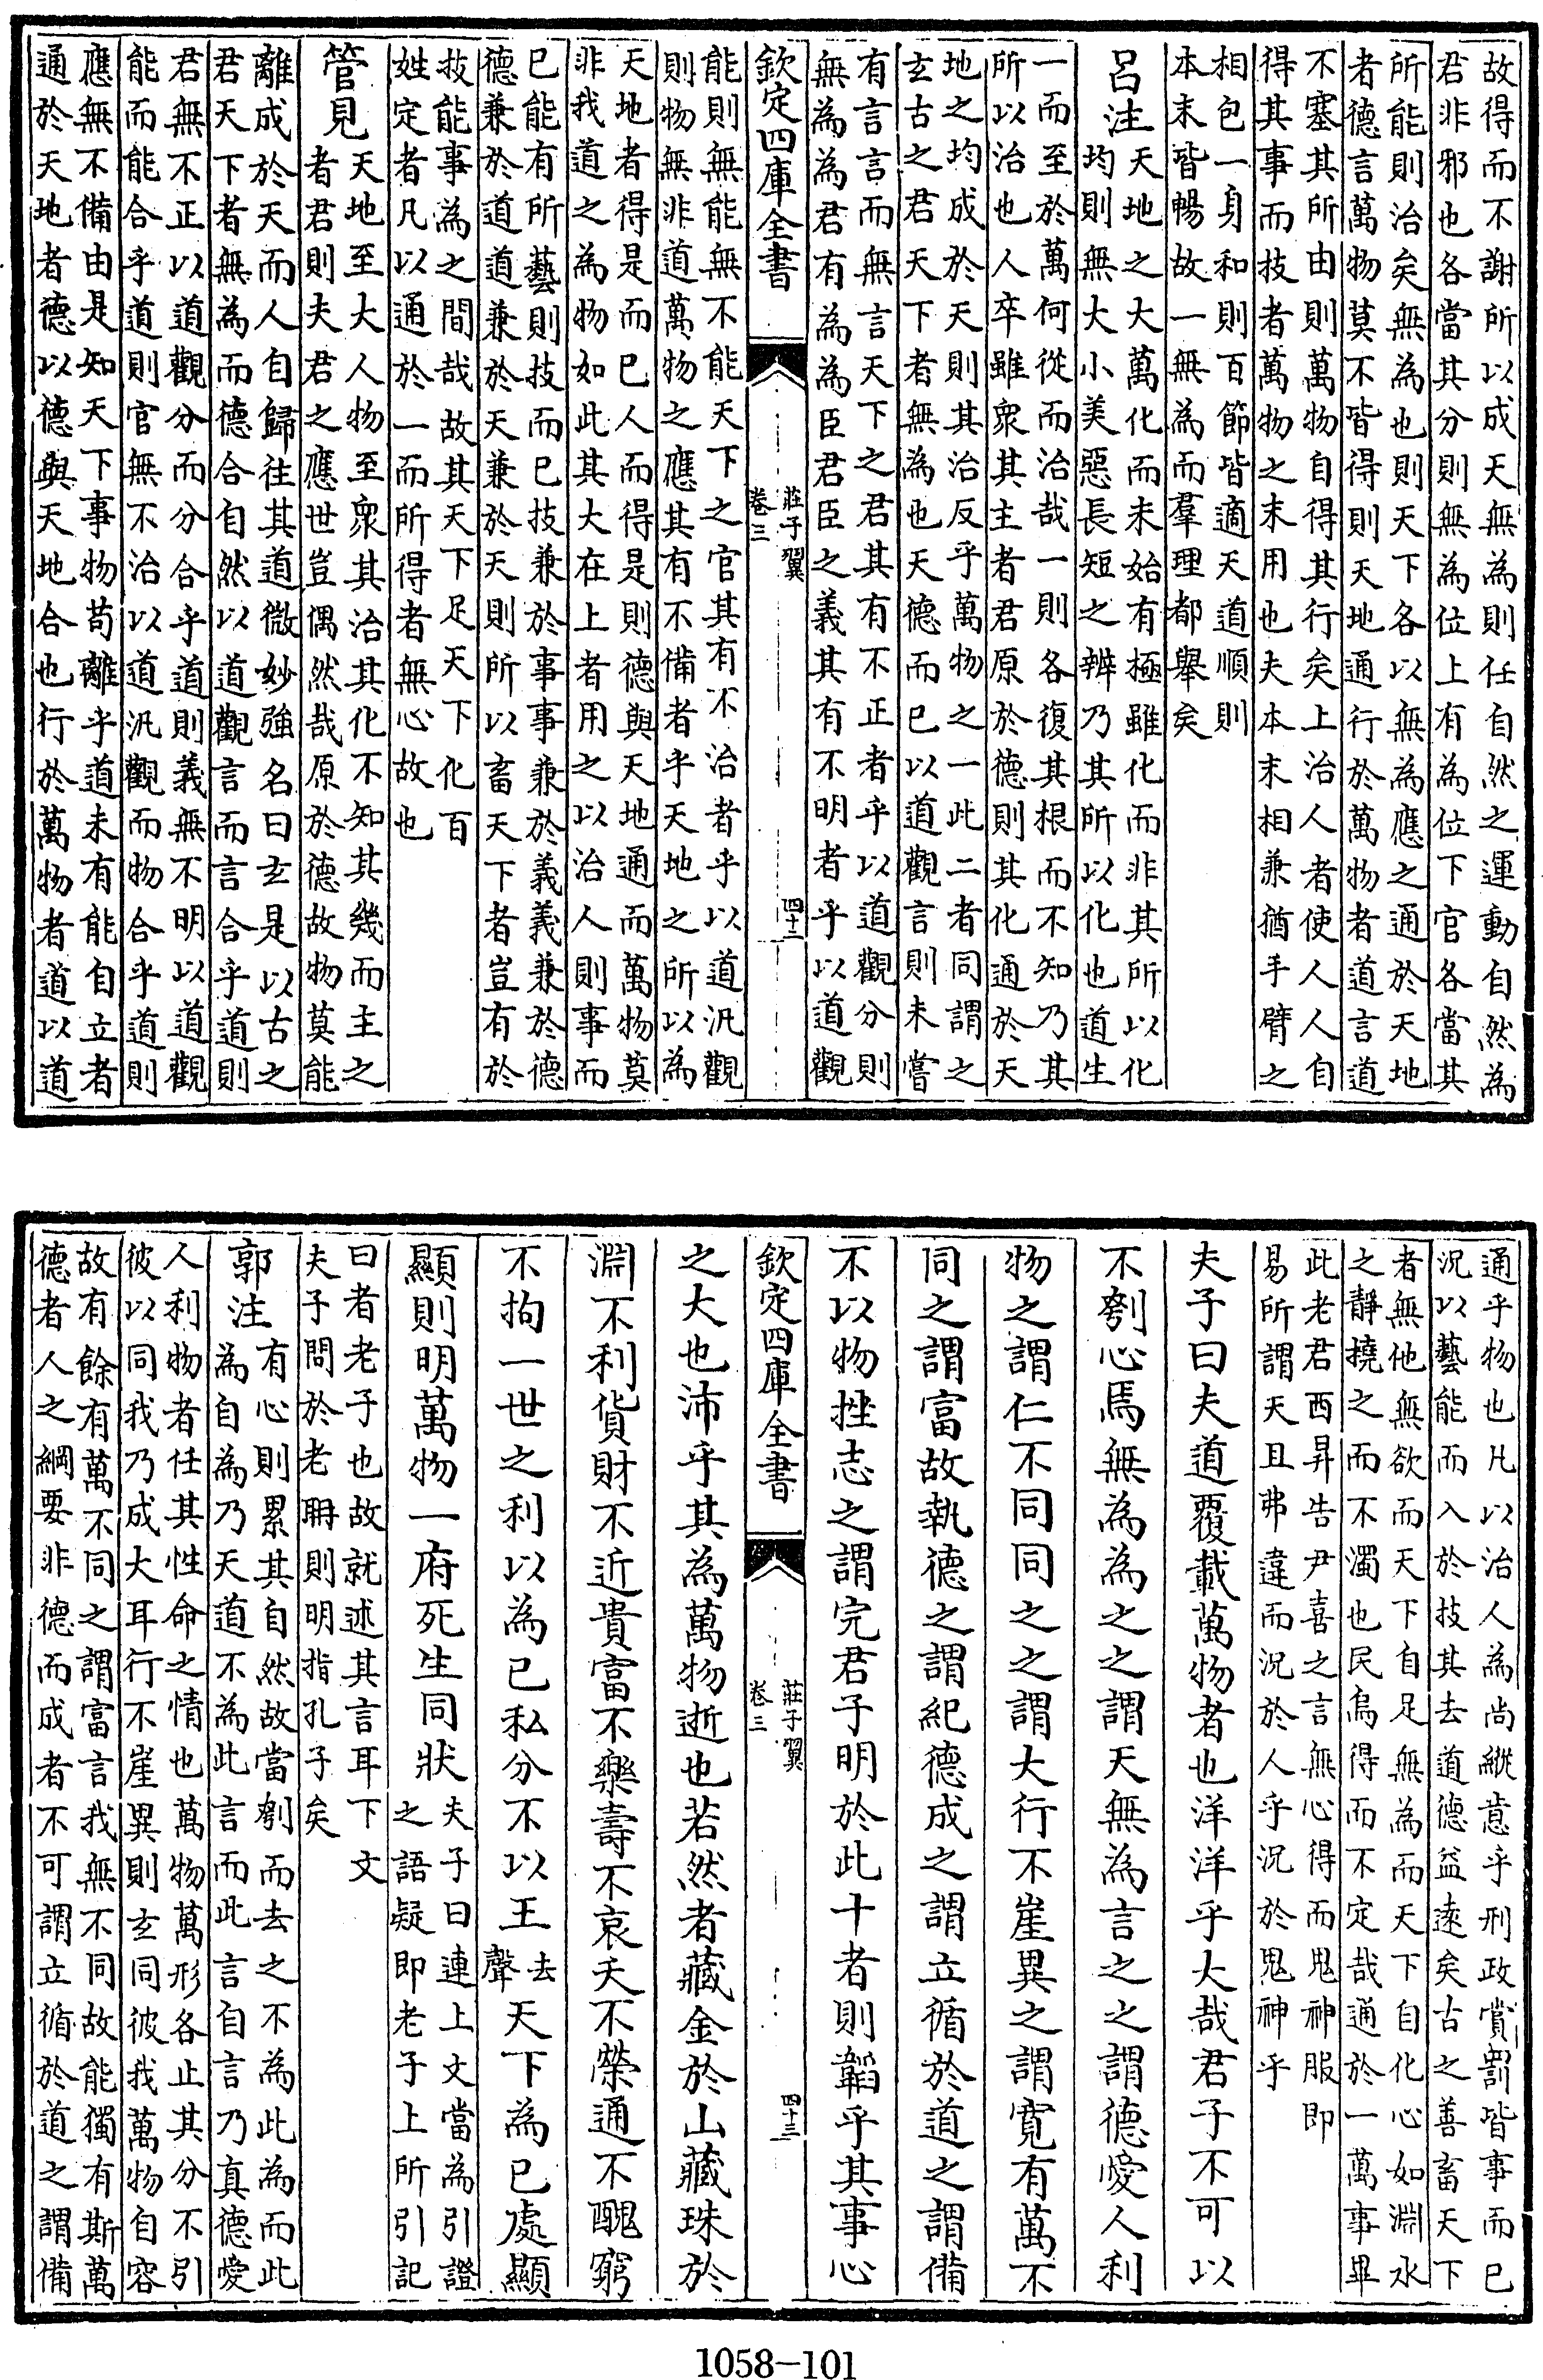 故得而不謝所以成天無為則任自然之運動自然為
君非邪也各當其分則無為位上有為位下官各當其
所能則治矣無為也則天下各以無為應之通於天地
者德言萬物莫不皆得則天地通行於萬物者道言道
不塞其所由則萬物自得其行矣上治人者使人人自
得其事而技者萬物之末用也夫本末相兼猶手臂之
相包一身和則百節皆適天道順則
本末皆暢故一無為而羣理都舉矣
呂注天地之大萬化而未始有極雖化而非其所以化
均則無大小美惡長短之辨乃其所以化也道生
一而至於萬何從而治哉一則各復其根而不知乃其
所以治也人卒雖衆其主者君原於德則其化通於天
地之均成於天則其治反乎萬物之一此二者同謂之
玄古之君天下者無為也天德而已以道觀言則未嘗
有言言而無言天下之君其有不正者乎以道觀分則
無為為君有為為臣君臣之義其有不明者乎以道觀
欽定四庫全書
莊子翼
卷三
四十二
能則無能無不能天下之官其有不治者乎以道汎觀
則物無非道萬物之應其有不備者乎天地之所以為
天地者得是而已人而得是則德與天地通而萬物莫
非我道之為物如此其大在上者用之以治人則事而
已能有所藝則技而已技兼於事事兼於義義兼於德
德兼於道道兼於天兼於天則所以畜天下者豈有於
技能事為之間哉故其天下足天下化百
姓定者凡以通於一而所得者無心故也
管見天地至大人物至衆其治其化不知其幾而主之
者君則夫君之應世豈偶然哉原於德故物莫能
離成於天而人自歸往其道微妙強名曰玄是以古之
君天下者無為而德合自然以道觀言而言合乎道則
君無不正以道觀分而分合乎道則義無不明以道觀
能而能合乎道則官無不治以道汎觀而物合乎道則
應無不備由是知天下事物苟離乎道未有能自立者
通於天地者德以德與天地合也行於萬物者道以道
通乎物也凡以治人為尚縱意乎刑政賞罰皆事而已
況以藝能而入於技其去道德益遠矣古之善畜天下
者無他無欲而天下自足無為而天下自化心如淵水
之靜撓之而不濁也民烏得而不定哉通於一萬事畢
此老君西昇告尹喜之言無心得而鬼神服即
易所謂天且弗違而況於人乎況於鬼神乎
夫子曰夫道覆載萬物者也洋洋乎大哉君子不可以
不刳心焉無為為之之謂天無為言之之謂德愛人利
物之謂仁不同同之之謂大行不崖異之謂寛有萬不
同之謂富故執德之謂紀德成之謂立循於道之謂備
不以物挫志之謂完君子明於此十者則韜乎其事心
欽定四庫全書
莊子翼
卷三
四十三
之大也沛乎其為萬物逝也若然者藏金於山藏珠於
淵不利貨財不近貴富不樂壽不哀夭不榮通不醜窮
不拘一世之利以為已私分不以王去聲天下為已處顯
顯則明萬物一府死生同狀夫子曰連上文當為引證
之語疑即老子上所引記
曰者老子也故就述其言耳下文
夫子問於老聃則明指孔子矣
郭注有心則累其自然故當刳而去之不為此為而此
為自為乃天道不為此言而此言自言乃真德愛
人利物者任其性命之情也萬物萬形各止其分不引
彼以同我乃成大耳行不崖異則玄同彼我萬物自容
故有餘有萬不同之謂富言我無不同故能獨有斯萬
德者人之綱要非德而成者不可謂立循於道之謂備
1058-101